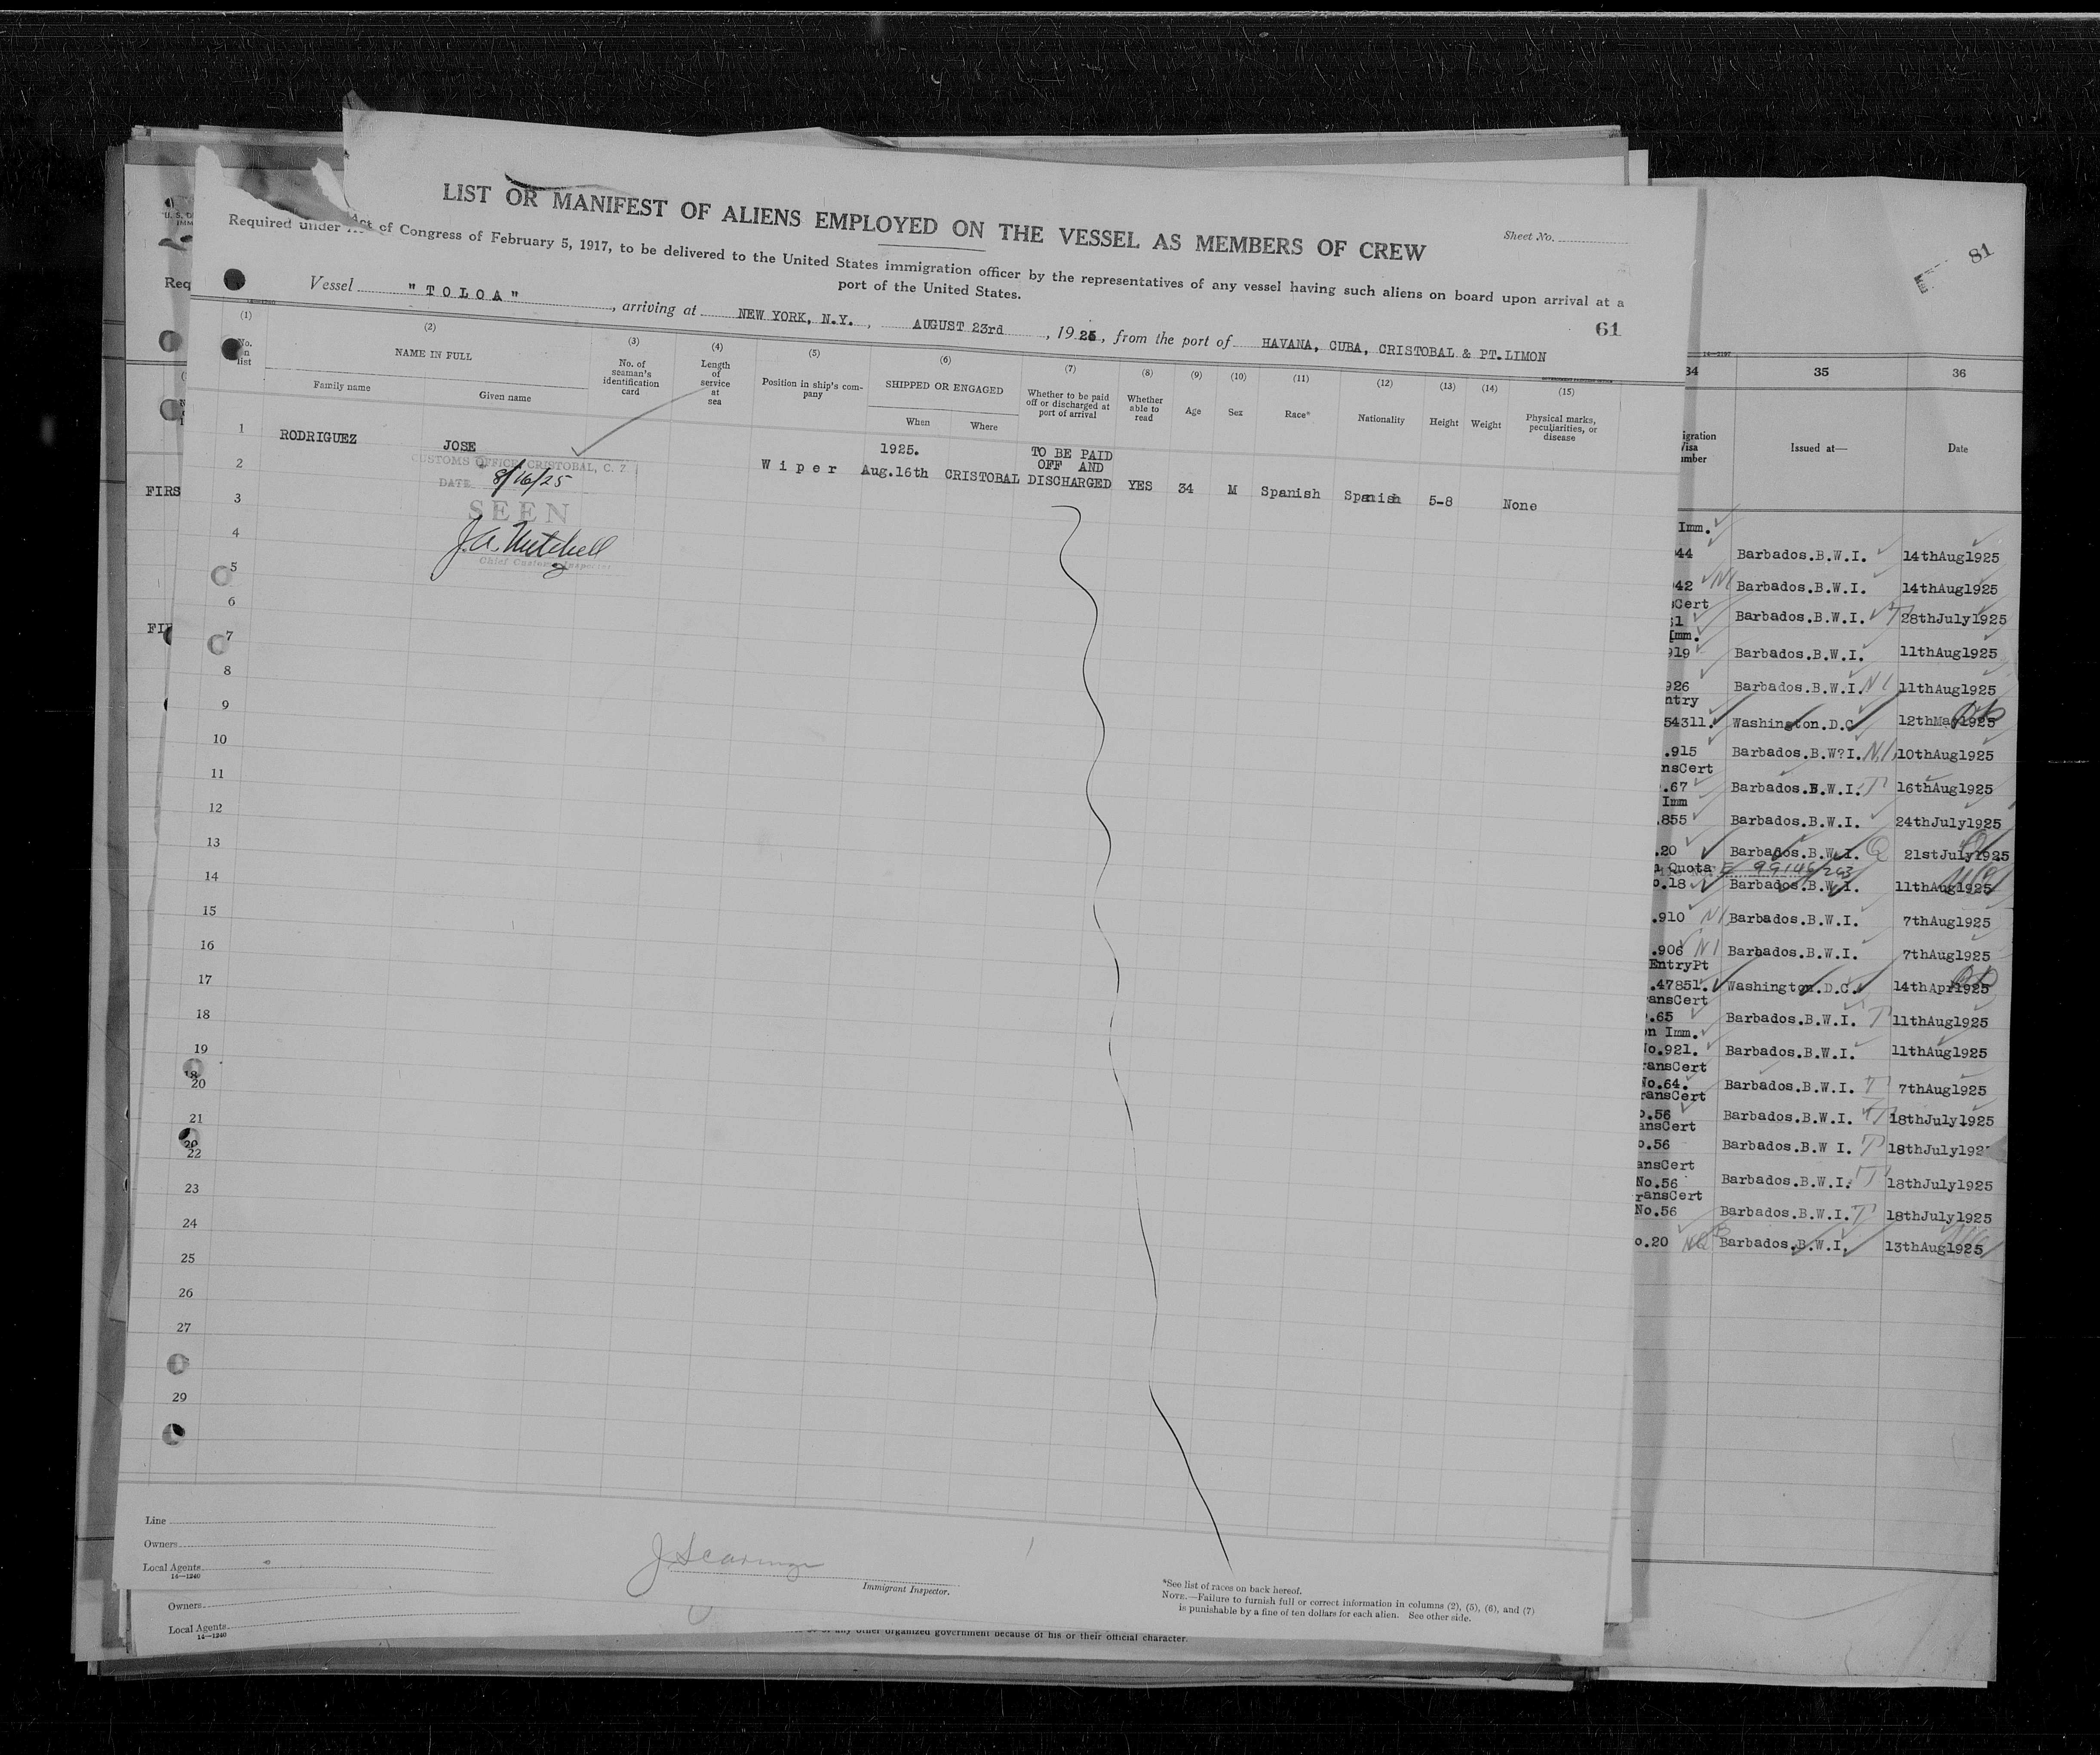 LIST OR MANIFEST OF ALIENS EMPLOYED ON THE VESSEL AS MEMBERS OF CREW
Sheet No.
Required under Act of Congress of February 5, 1917, to be delivered to the United States immigration officer by the representatives of any vessel having such aliens on board upon arrival at a
port of the United States.
Vessel "TOLOA", arriving at NEW YORK, N.Y., AUGUST 23rd, 1925, from the port of HAVANA, CUBA, CRISTOBAL & PT.LIMON
61
(1) (2) (3) (4) (5) (6) (7) (8) (9) (10) (11) (12) (13) (14) (15)
No. in list
NAME IN FULL
Family name
Given name
No. of seaman's identification card
Length of service at sea
Position in ship's company
SHIPPED OR ENGAGED
When
Where
Whether to be paid off or discharged at port of arrival
Whether able to read
Age
Sex
Race*
Nationality
Height
Weight
Physical marks, peculiarities, or disease
1 RODRIGUEZ JOSE
1925. TO BE PAID
OFF AND
Wiper Aug.16th CRISTOBAL DISCHARGED YES 34 M Spanish Spanish 5-8 None
CUSTOMS OFFICE, CRISTOBAL, C. Z
DATE 8/16/25
SEEN
J.A. Mitchell
Chief Customs Inspector
2
3
4
5
6
7
8
9
10
11
12
13
14
15
16
17
18
19
18
20
21
20
22
23
24
25
26
27
29
Line
Owners
Local Agents
14—1240
Immigrant Inspector.
*See list of races on back hereof.
NOTE.—Failure to furnish full or correct information in columns (2), (5), (6), and (7)
is punishable by a fine of ten dollars for each alien. See other side.
Owners
Local Agents
14—1240
any other organized government because of his or their official character.
Req
FIRS
81
14—2197
34 35 36
Issued at—
Date
Imm.
44 Barbados.B.W.I. 14thAug1925
42 NI Barbados.B.W.I. 14thAug1925
Cert
Barbados.B.W.I. T 28thJuly1925
Imm.
919 Barbados.B.W.I. 11thAug1925
926 Barbados.B.W.I. NI 11thAug1925
ntry
54311. Washington.D.C 12thMay1925
.915 Barbados.B.W?I. NI 10thAug1925
nsCert
.67 Barbados.B.W.I. T 16thAug1925
Imm
.855 Barbados.B.W.I. 24thJuly1925
.20 Barbados.B.W.I. Q 21stJuly1925
Quota
o.18 Barbados.B.W.I. 11thAug1925
.910 NI Barbados.B.W.I. 7thAug1925
.906 NI Barbados.B.W.I. 7thAug1925
EntryPt
.47851. Washington.D.C. 14thApr1925
ansCert
.65 Barbados.B.W.I. T 11thAug1925
n Imm.
No.921. Barbados.B.W.I. 11thAug1925
ransCert
No.64. Barbados.B.W.I. T 7thAug1925
ransCert
o.56 Barbados.B.W.I. T 18thJuly1925
ansCert
o.56 Barbados.B.W I. T 18thJuly192
ansCert
No.56 Barbados.B.W.I. T 18thJuly1925
ransCert
No.56 Barbados.B.W.I. T 18thJuly1925
o.20 Barbados.B.W.I. 13thAug1925